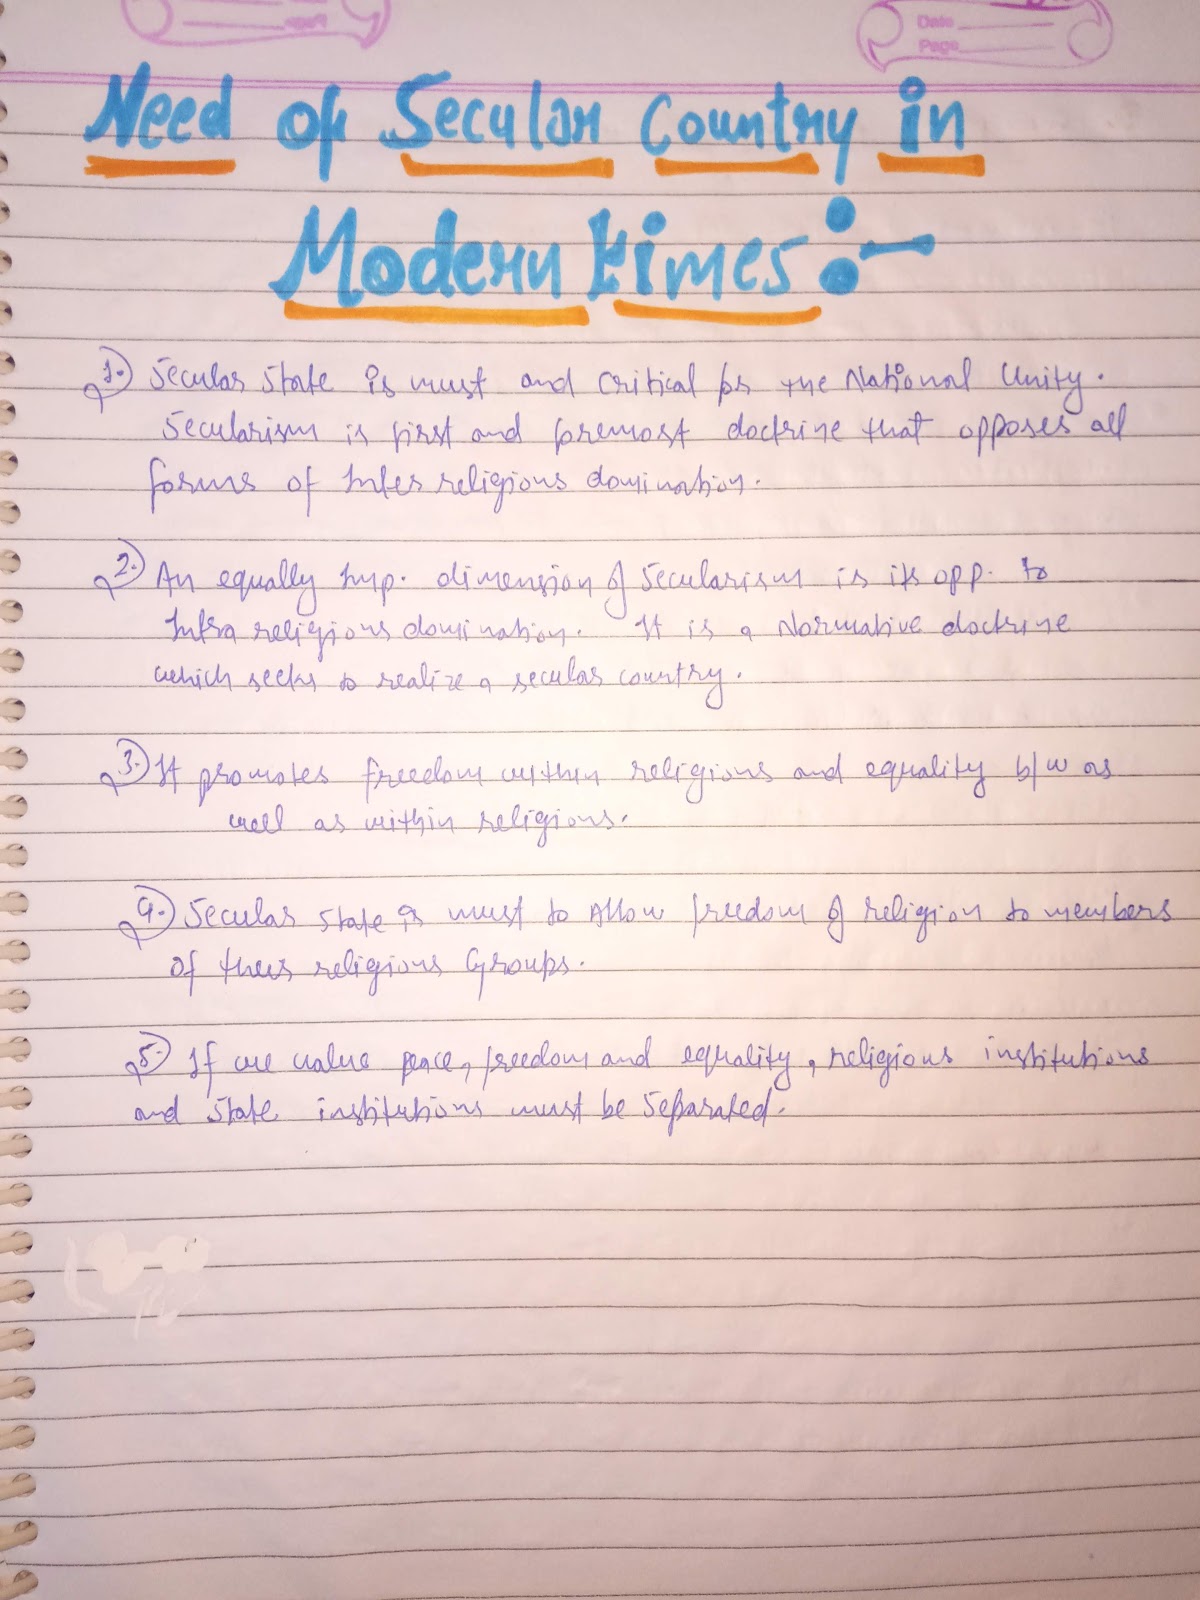 Date
Page
Need of Secular Country in
Modern times :-
1. Secular State is must and Critical for the National Unity.
Secularism is first and foremost doctrine that opposes all
forms of Inter religious domination.
2. An equally Imp. dimension of Secularism is its opp. to
Intra religious domination. It is a Normative doctrine
which seeks to realize a secular country.
3. It promotes freedom within religions and equality b/w as
well as within religions.
4. Secular State is must to Allow freedom of religion to members
of their religious Groups.
5. If we value peace, freedom and equality, religious institutions
and State institutions must be Separated.